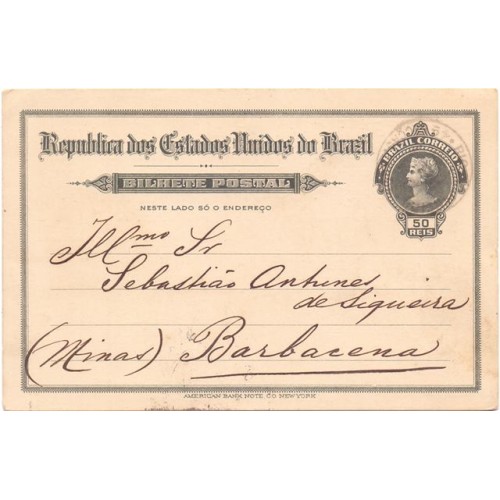 Republica dos Estados Unidos do Brazil
BILHETE POSTAL
NESTE LADO SÓ O ENDEREÇO
BRAZIL CORREIO
50
REIS
Illmo Sr
Sebastião Antunes
de Siqueira
(Minas) Barbacena
AMERICAN BANK NOTE CO NEW YORK